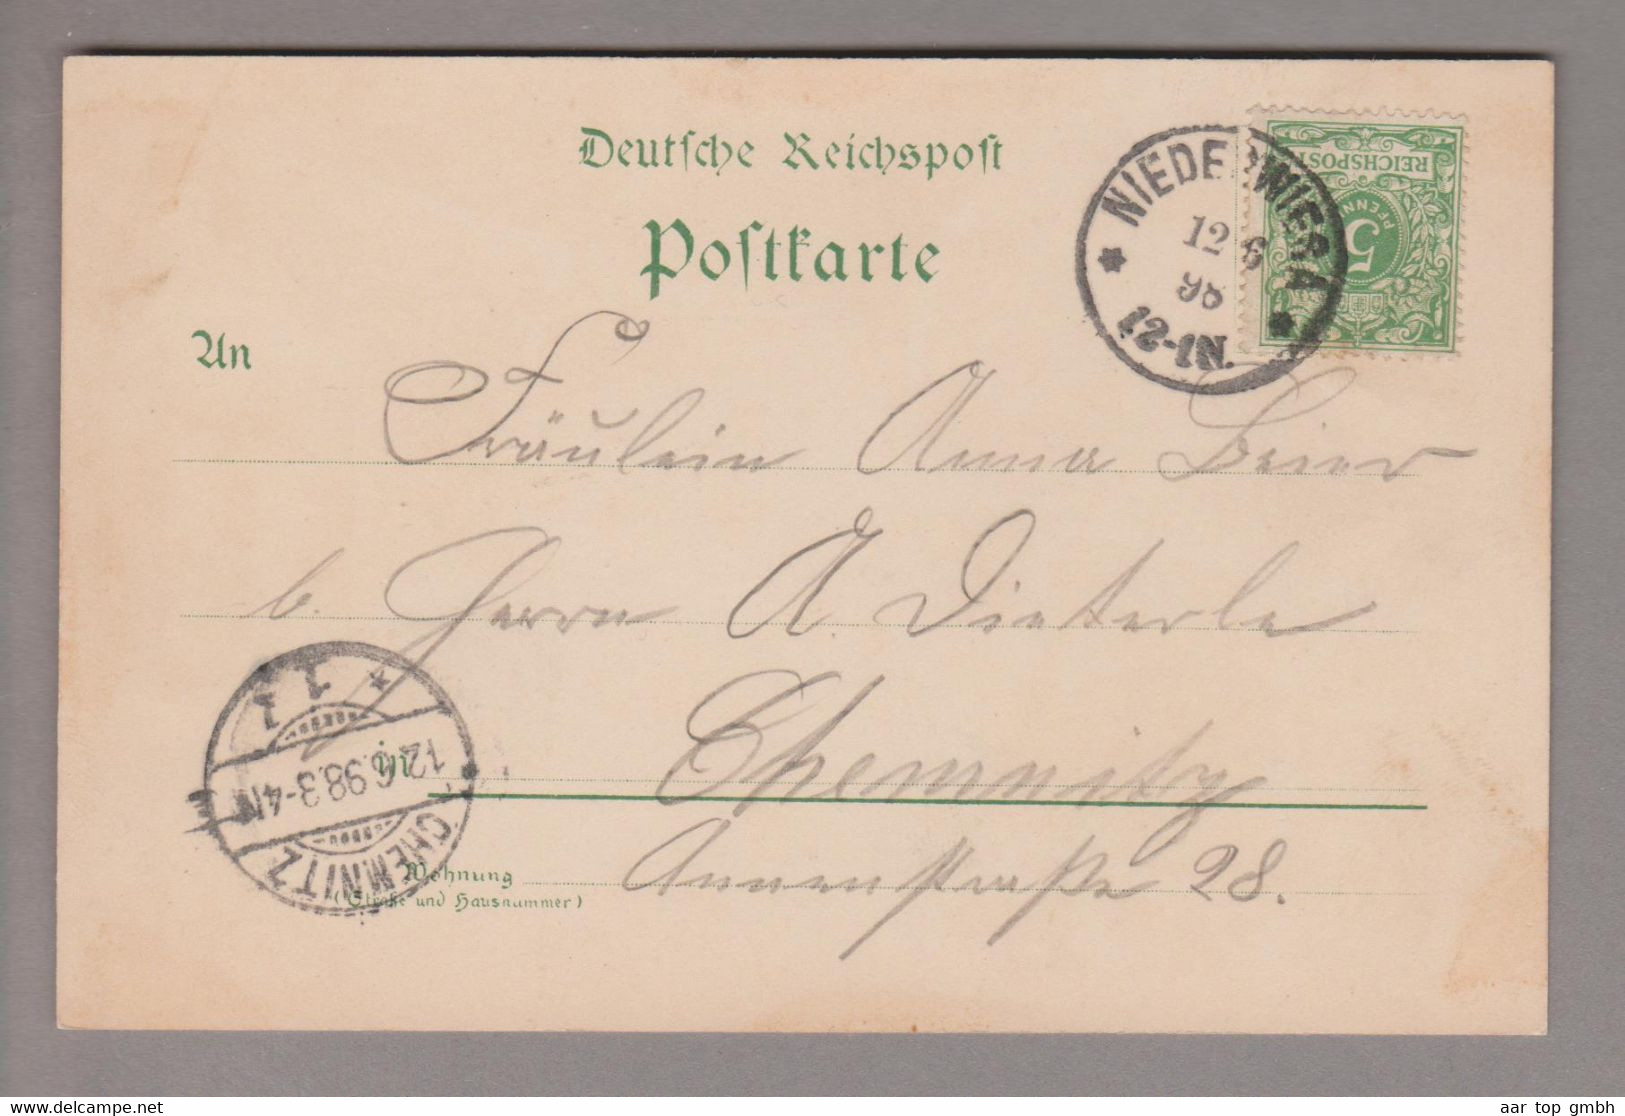 Deutsche Reichspost
Postkarte
NIEDERWIERA
12 6
98
12-1N.
REICHSPOST
5
PFENNIG
An
Fräulein Anna Beier
b. Herrn A. Dieterle
in Chemnitz
Wohnung Annenstraße 28.
(Straße und Hausnummer)
CHEMNITZ
12.6.98.3-4N
1 1
aar top gmbh